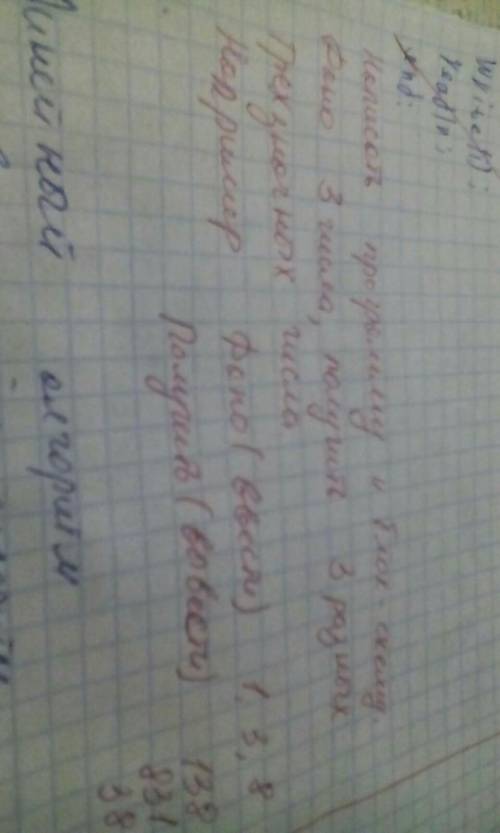 Write(');
readln;
end.
Написать программу и блок-схему.
Дано 3 числа, получить 3 разных
трехзначных числа
Например Дано (ввести) 1, 3, 8
Получить (вывести) 138
831
38
Линейный алгоритм